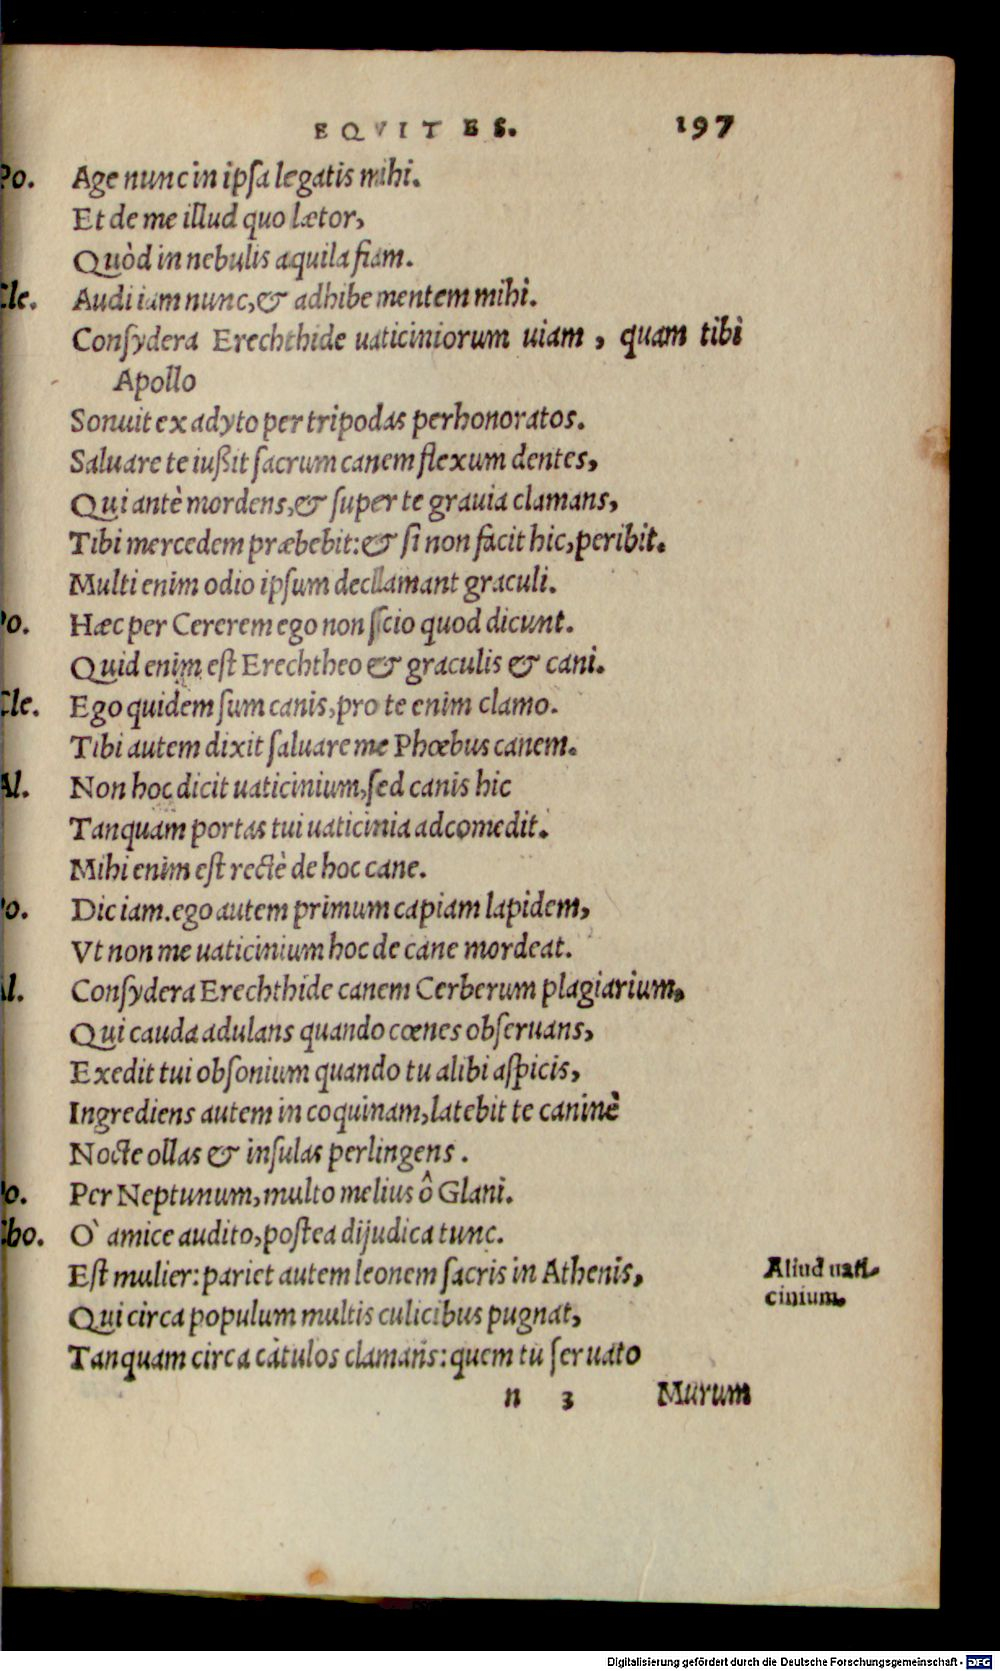 EQVITES. 197
Po. Age nunc in ipsa legatis mihi.
Et de me illud quo lætor,
Quòd in nebulis aquila fiam.
Cle. Audi iam nunc, & adhibe mentem mihi.
Consydera Erechthide uaticiniorum uiam, quam tibi
Apollo
Sonuit ex adyto per tripodas perhonoratos.
Saluare te iußit sacrum canem flexum dentes,
Qui antè mordens, & super te grauia clamans,
Tibi mercedem præbebit: & si non facit hic, peribit.
Multi enim odio ipsum decllamant graculi.
Po. Hæc per Cererem ego non scio quod dicunt.
Quid enim est Erechtheo & graculis & cani.
Cle. Ego quidem sum canis, pro te enim clamo.
Tibi autem dixit saluare me Phœbus canem.
Al. Non hoc dicit uaticinium, sed canis hic
Tanquam portas tui uaticinia adcomedit.
Mihi enim est rectè de hoc cane.
Po. Dic iam. ego autem primum capiam lapidem,
Vt non me uaticinium hoc de cane mordeat.
Al. Consydera Erechthide canem Cerberum plagiarium,
Qui cauda adulans quando cœnes obseruans,
Exedit tui obsonium quando tu alibi aspicis,
Ingrediens autem in coquinam, latebit te caninè
Nocte ollas & insulas perlingens.
Po. Per Neptunum, multo melius ô Glani.
Cho. O` amice audito, postea dijudica tunc.
Est mulier: pariet autem leonem sacris in Athenis,
Aliud uati-
cinium.
Qui circa populum multis culicibus pugnat,
Tanquam circa catulos clamans: quem tu seruato
n 3 Murum
Digitalisierung gefördert durch die Deutsche Forschungsgemeinschaft - DFG